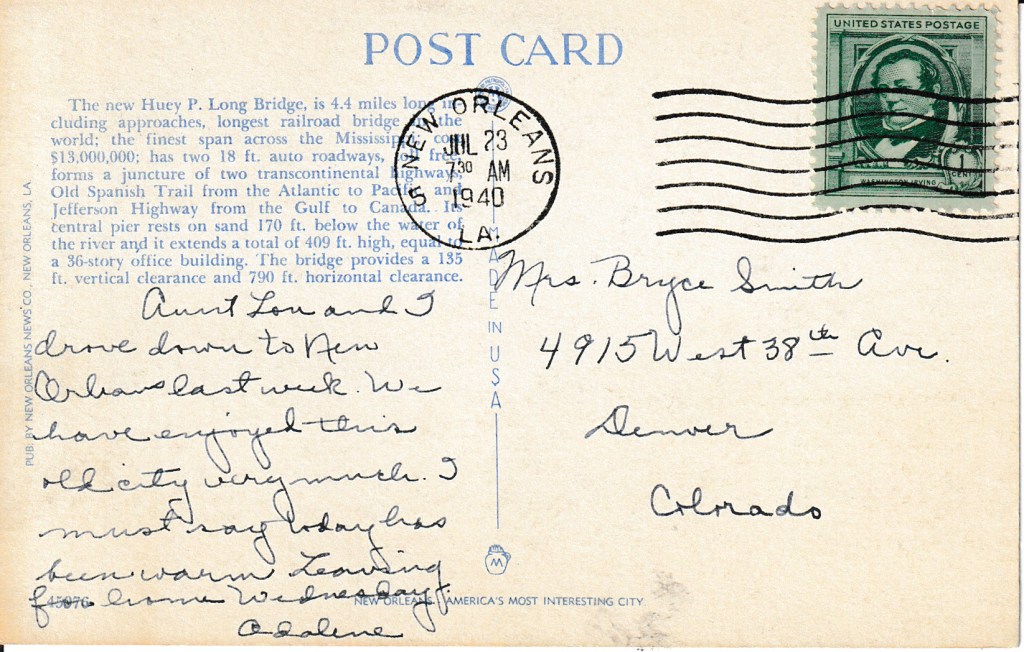 POST CARD
UNITED STATES POSTAGE
1
CENT
WASHINGTON IRVING
NEW ORLEANS
JUL 23
7 30 AM
1940
5
LA.
The new Huey P. Long Bridge, is 4.4 miles long in-
cluding approaches, longest railroad bridge in the
world; the finest span across the Mississippi; cost
$13,000,000; has two 18 ft. auto roadways, toll free,
forms a juncture of two transcontinental highways,
Old Spanish Trail from the Atlantic to Pacific and
Jefferson Highway from the Gulf to Canada. Its
central pier rests on sand 170 ft. below the water of
the river and it extends a total of 409 ft. high, equal to
a 36-story office building. The bridge provides a 135
ft. vertical clearance and 790 ft. horizontal clearance.
Aunt Lou and I
drove down to New
Orleans last week. We
have enjoyed this
old city very much. I
must say today has
been warm Leaving
for home Wednesday.
Adalene
Mrs. Bryce Smith
4915 West 38th Ave.
Denver
Colorado
PUB. BY NEW ORLEANS NEWS CO., NEW ORLEANS, LA
MADE IN USA
M
45076
NEW ORLEANS, AMERICA'S MOST INTERESTING CITY